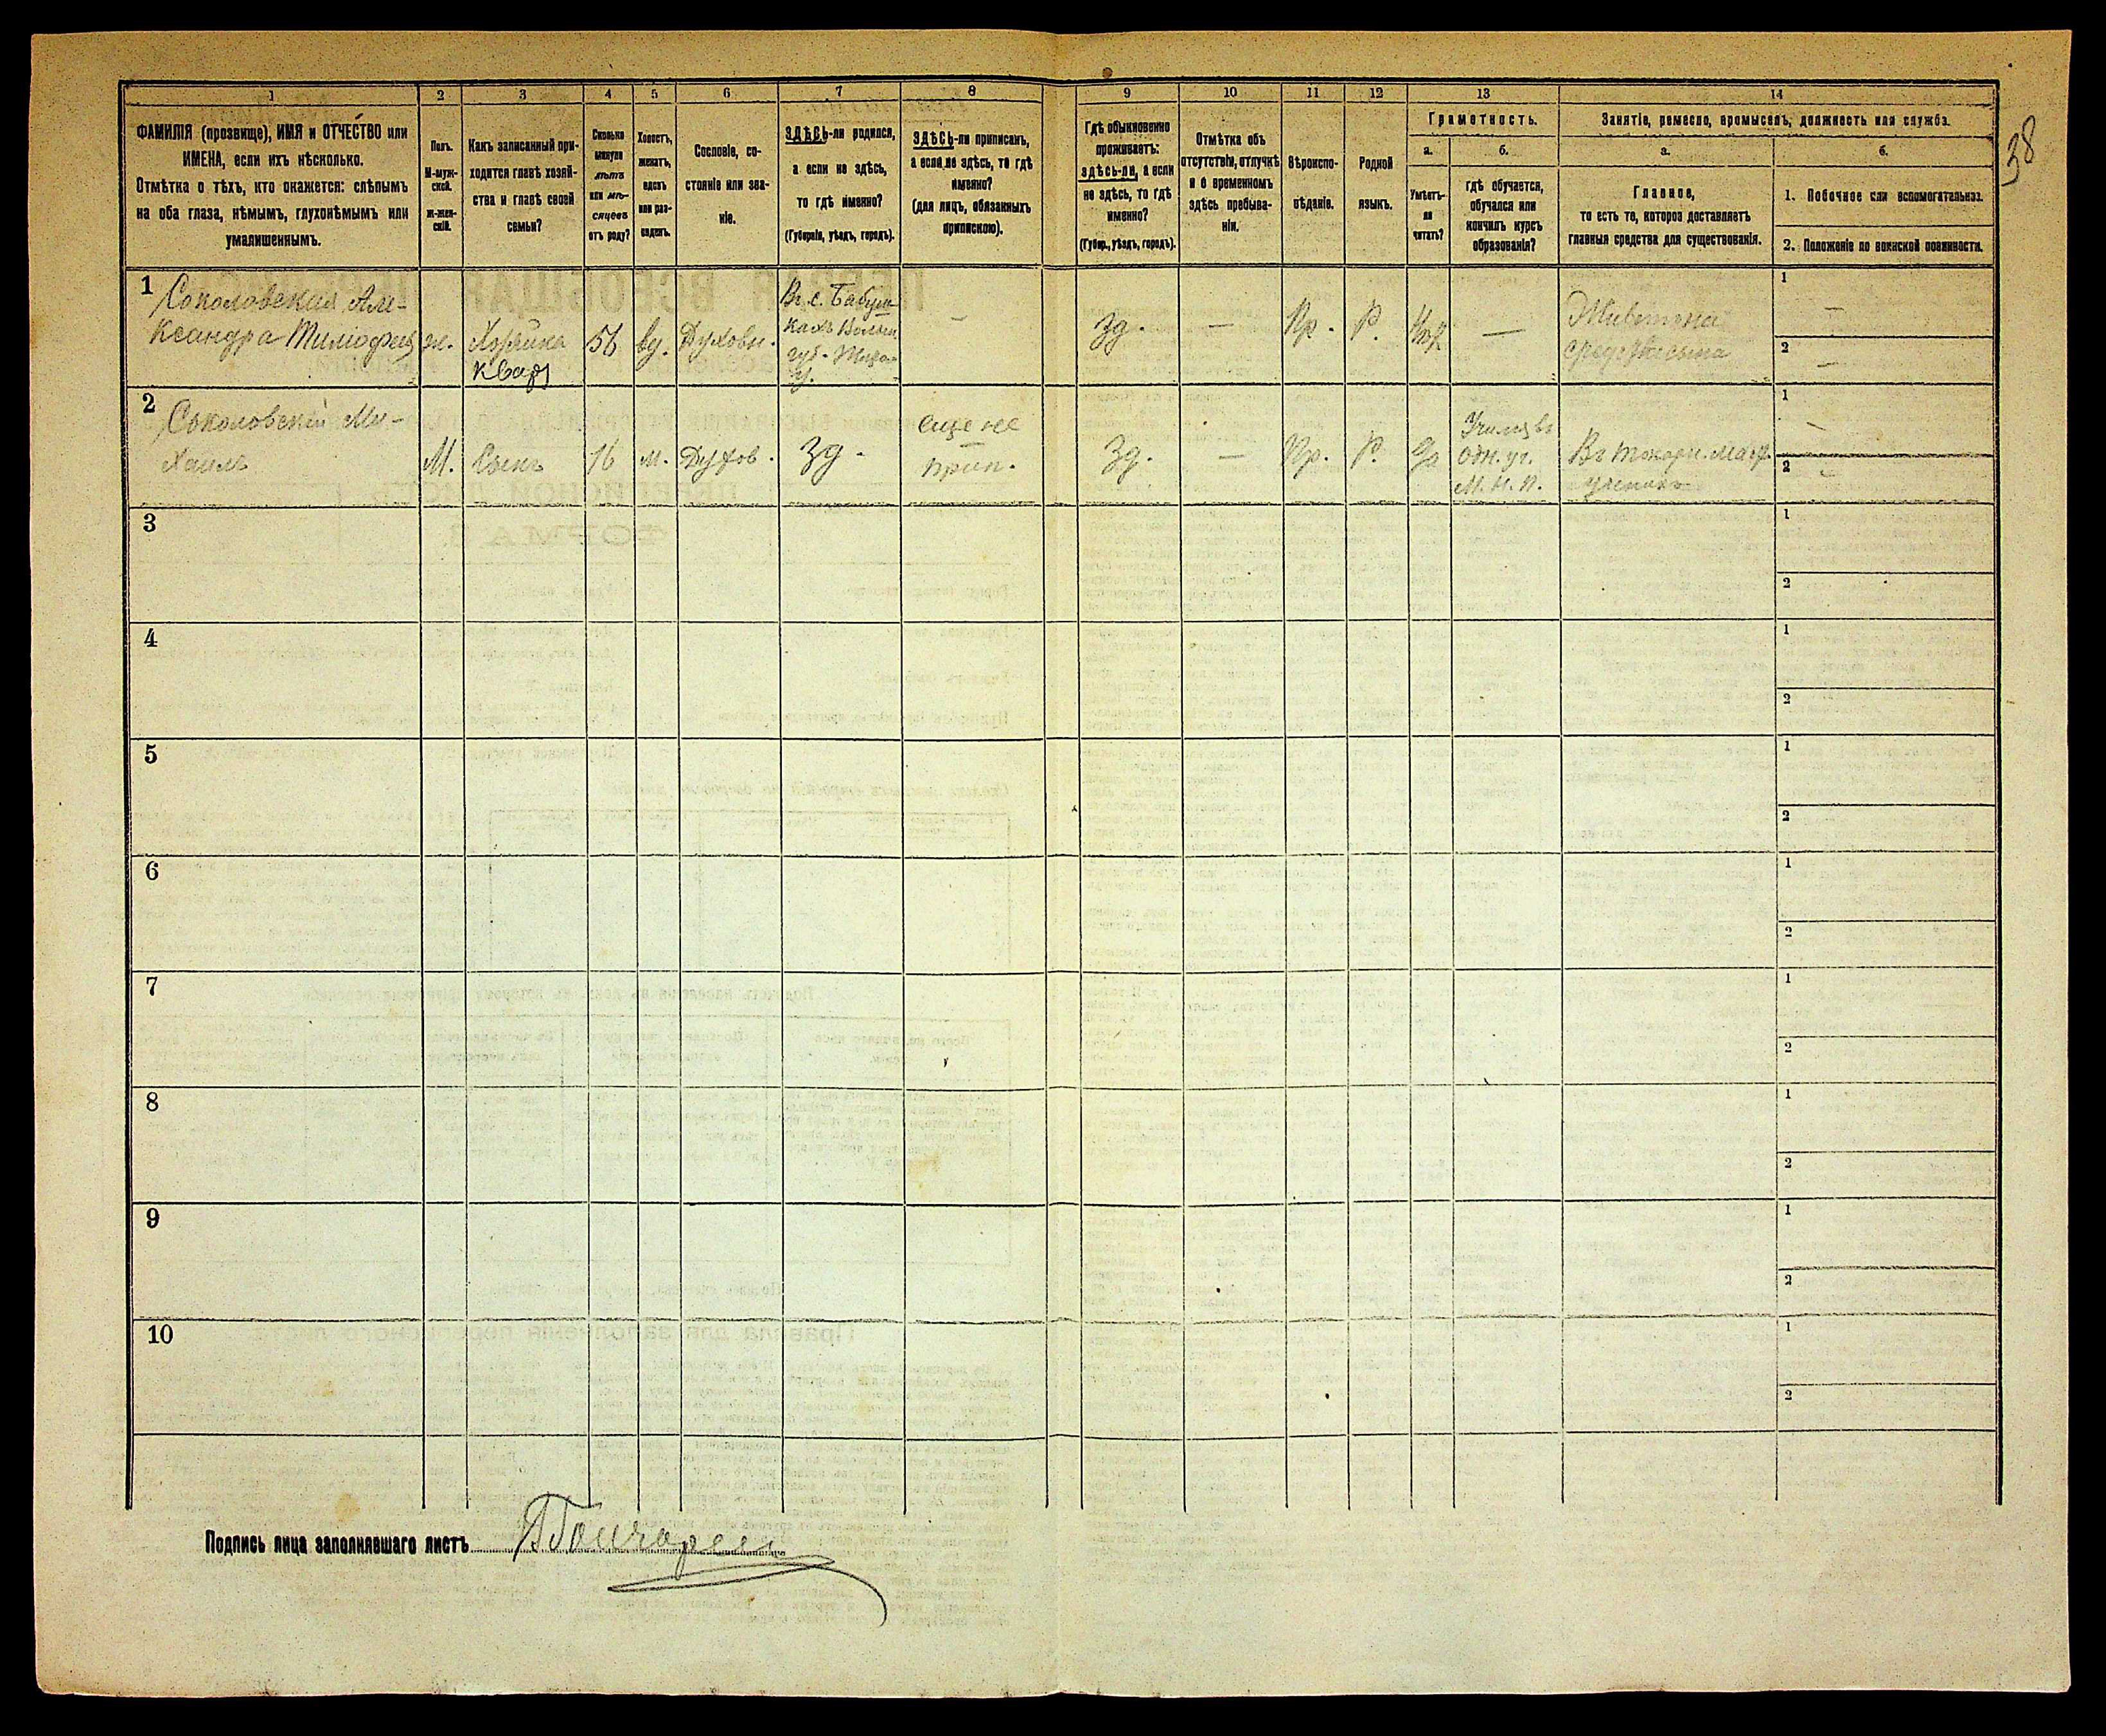 38
1 2 3 4 5 6 7 8 9 10 11 12 13 14
ФАМИЛІЯ (прозвище), ИМЯ и ОТЧЕСТВО или
ИМЕНА, если ихъ нѣсколько.
Отмѣтка о тѣхъ, кто окажется: слѣпымъ
на оба глаза, нѣмымъ, глухонѣмымъ или
умалишеннымъ.
Полъ.
М-муж-
ской.
ж-жен-
скій.
Какъ записанный при-
ходится главѣ хозяй-
ства и главѣ своей
семьи?
Сколько
минуло
лѣтъ
или мѣ-
сяцевъ
отъ роду?
Холостъ,
женатъ,
вдовъ
или раз-
веденъ.
Сословіе, со-
стояніе или зва-
ніе.
ЗДѢСЬ-ли родился,
а если не здѣсь,
то гдѣ именно?
(Губернія, уѣздъ, городъ).
ЗДѢСЬ-ли приписанъ,
а если не здѣсь, то гдѣ
именно?
(для лицъ, обязанныхъ
припискою).
Гдѣ обыкновенно
проживаетъ:
здѣсь-ли, а если
не здѣсь, то гдѣ
именно?
(Губер., уѣздъ, городъ).
Отмѣтка объ
отсутствіи, отлучкѣ
и о временномъ
здѣсь пребыва-
ніи.
Вѣроиспо-
вѣданіе.
Родной
языкъ.
Грамотность.
а.
Умѣетъ-
ли
читать?
б.
гдѣ обучается,
обучался или
кончилъ курсъ
образованія?
Занятіе, ремесло, промыселъ, должность или служба.
а.
Главное,
то есть то, которое доставляетъ
главныя средства для существованія.
б.
1. Побочное или вспомогательное.
2. Положеніе по воинской повинности.
1
Соколовская Але-
ксандра Тимофѣ
ж.
Хозяйка
кварт
56
вд.
Духовн.
Вг. с.
губ.
у.
—
Зд.
—
Пр.
Р.
—
Живетъ на
средства сына
1
—
2
—
2
Соколовскій Ми-
хаилъ
М.
Сынъ
16
Духов.
Зд.
еще не
прип.
Зд.
—
Пр.
Р.
да
Учился въ
одн. уч.
М. Н. П.
Въ токарн.
ученикъ
1
—
2
—
3
1
2
4
1
2
5
1
2
6
1
2
7
1
2
8
1
2
9
1
2
10
1
2
Подпись лица заполнявшаго листъ